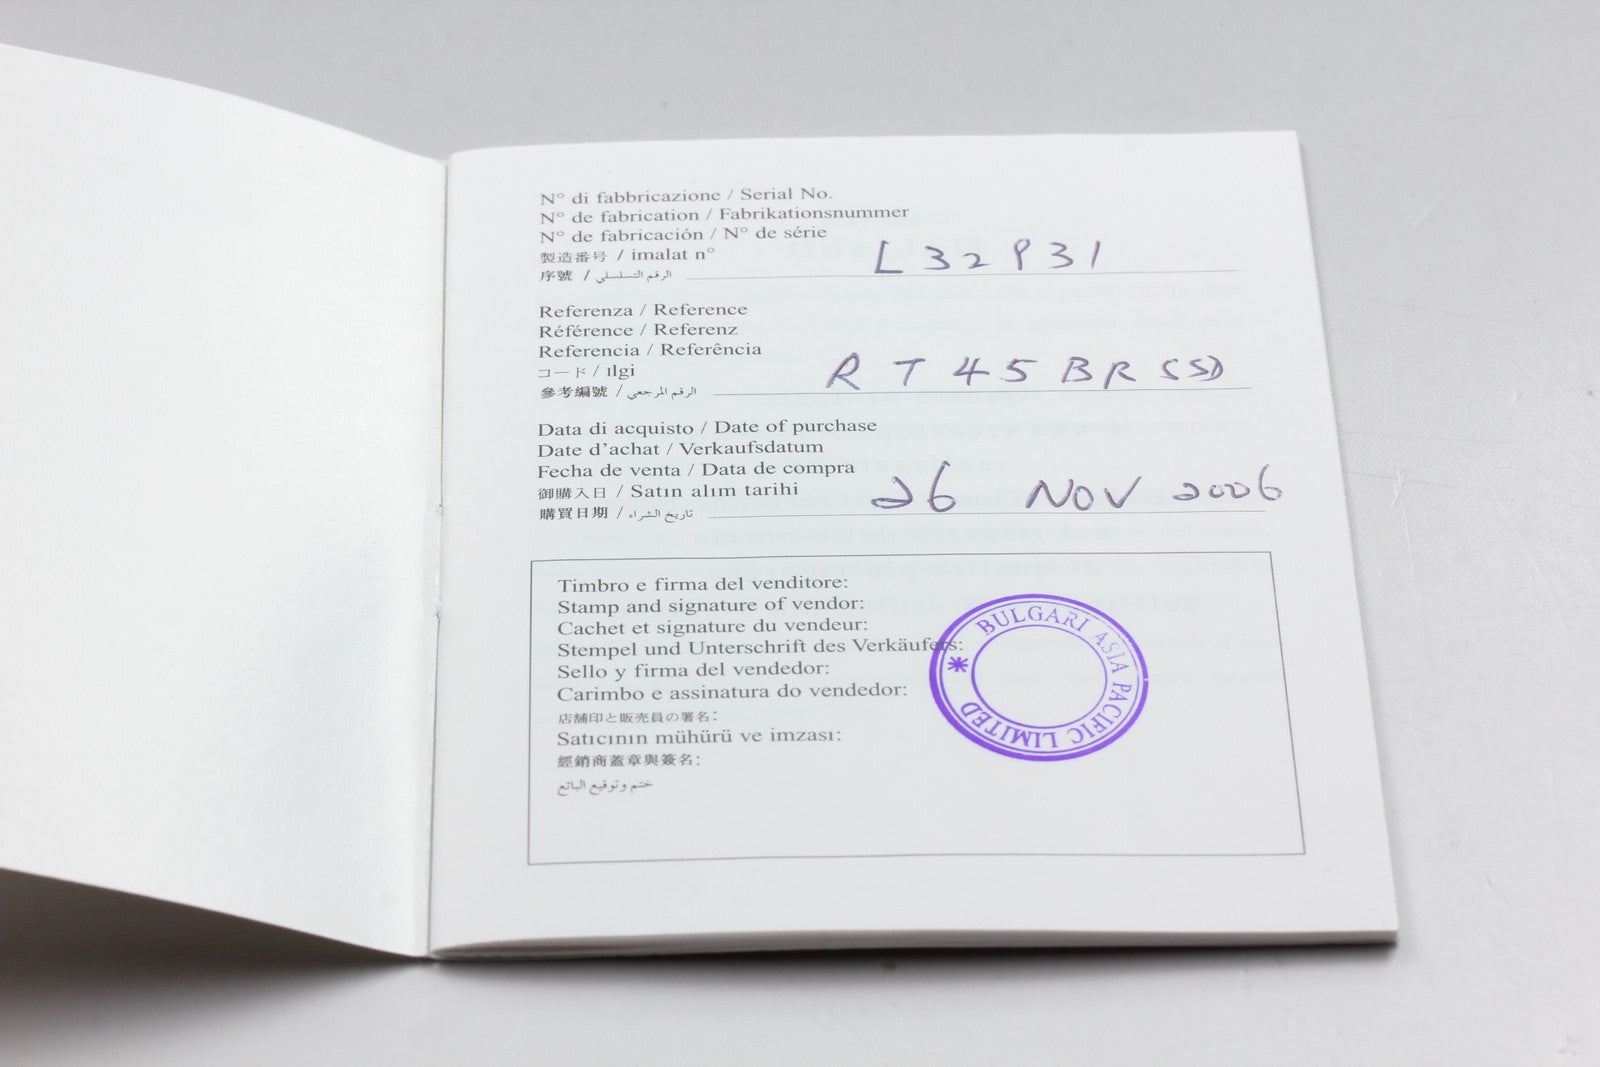 N° di fabbricazione / Serial No.
N° de fabrication / Fabrikationsnummer
N° de fabricación / N° de série
製造番号 / imalat n°
序號 / الرقم التسلسلي
L32931
Referenza / Reference
Référence / Referenz
Referencia / Referência
コード / Ilgi
參考編號 / الرقم المرجعي
RT45BRSSD
Data di acquisto / Date of purchase
Date d'achat / Verkaufsdatum
Fecha de venta / Data de compra
御購入日 / Satın alım tarihi
購買日期 / تاريخ الشراء
26 NOV 2006
Timbro e firma del venditore:
Stamp and signature of vendor:
Cachet et signature du vendeur:
Stempel und Unterschrift des Verkäufers:
Sello y firma del vendedor:
Carimbo e assinatura do vendedor:
店舗印と販売員の署名:
Satıcının mühürü ve imzası:
經銷商蓋章與簽名:
ختم وتوقيع البائع
BULGARI ASIA PACIFIC LIMITED *